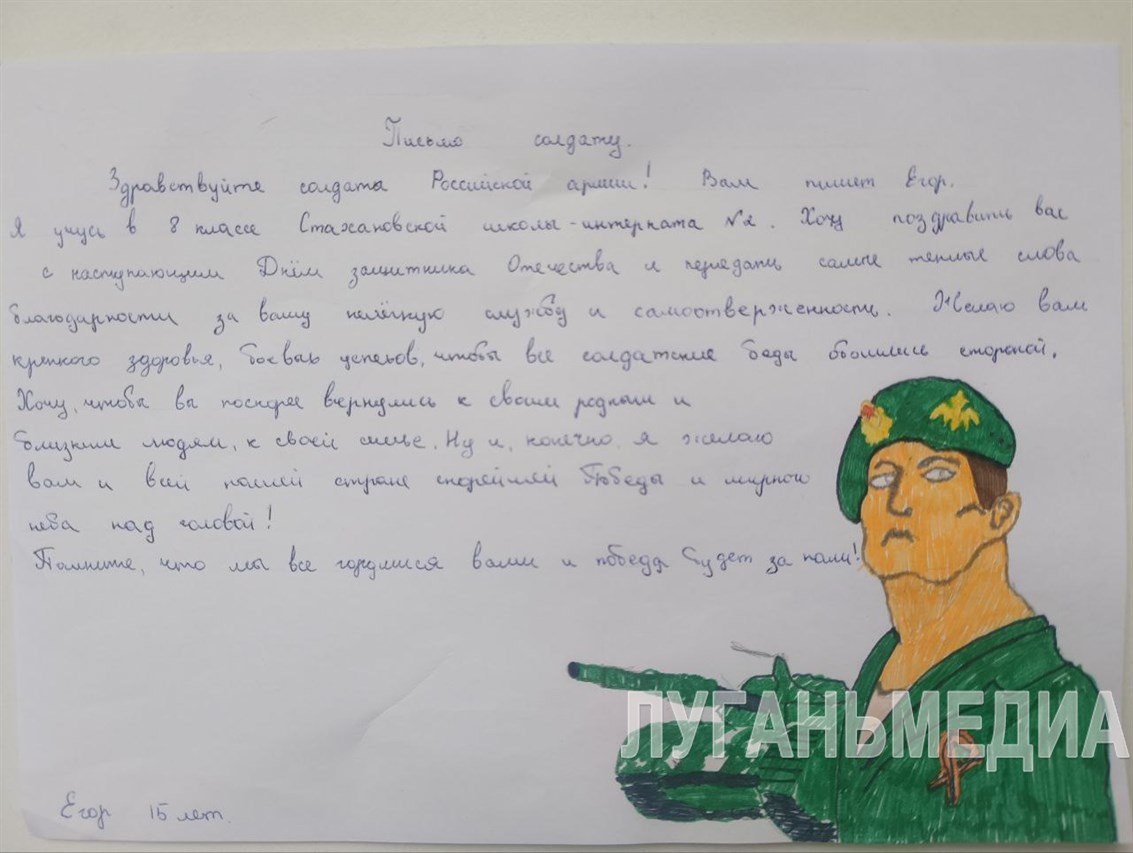 Письмо солдату.
Здравствуйте солдата Российской армии! Вам пишет Егор.
Я учусь в 8 классе Стахановской школы-интерната №2. Хочу поздравить вас
с наступающим Днём защитника Отечества и передать самые теплые слова
благодарности за вашу нелёгкую службу и самоотверженность. Желаю вам
крепкого здоровья, боевых успехов, чтобы все солдатские беды обошлись стороной.
Хочу, чтобы вы поскорее вернулись к своим родным и
близким людям, к своей семье. Ну и, конечно, я желаю
вам и всей нашей стране скорейшей Победы и мирного
неба над головой!
Помните, что мы все гордимся вами и победа будет за нами!
Егор 15 лет.
ЛУГАНЬМЕДИА